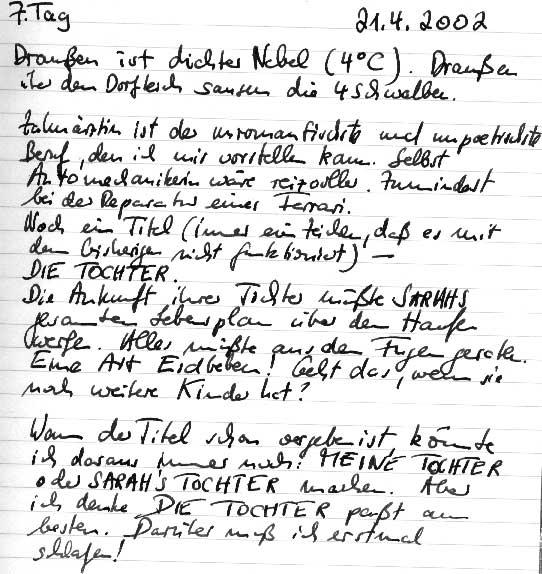 7. Tag 21.4.2002
Draußen ist dichter Nebel (4°C). Draußen
über dem Dorfteich sausen die 4 Schwalben.
Zahnärztin ist der unromantischste und unpoetischste
Beruf, den ich mir vorstellen kann. Selbst
Automechanikerin wäre reizvoller. Zumindest
bei der Reparatur eines Ferrari.
Noch ein Titel (immer ein Zeichen, daß es mit
dem bisherigen nicht funktioniert) —
DIE TOCHTER.
Die Ankunft ihrer Tochter müßte SARAHS
gesamten Lebensplan über den Haufen
werfen. Alles müßte aus den Fugen geraten.
Eine Art Erdbeben! Geht das, wenn sie
noch weitere Kinder hat?
Wenn der Titel schon vergeben ist, könnte
ich daraus immer noch: MEINE TOCHTER
oder SARAHS TOCHTER machen. Aber
ich denke DIE TOCHTER paßt am
besten. Darüber muß ich erstmal
schlafen!